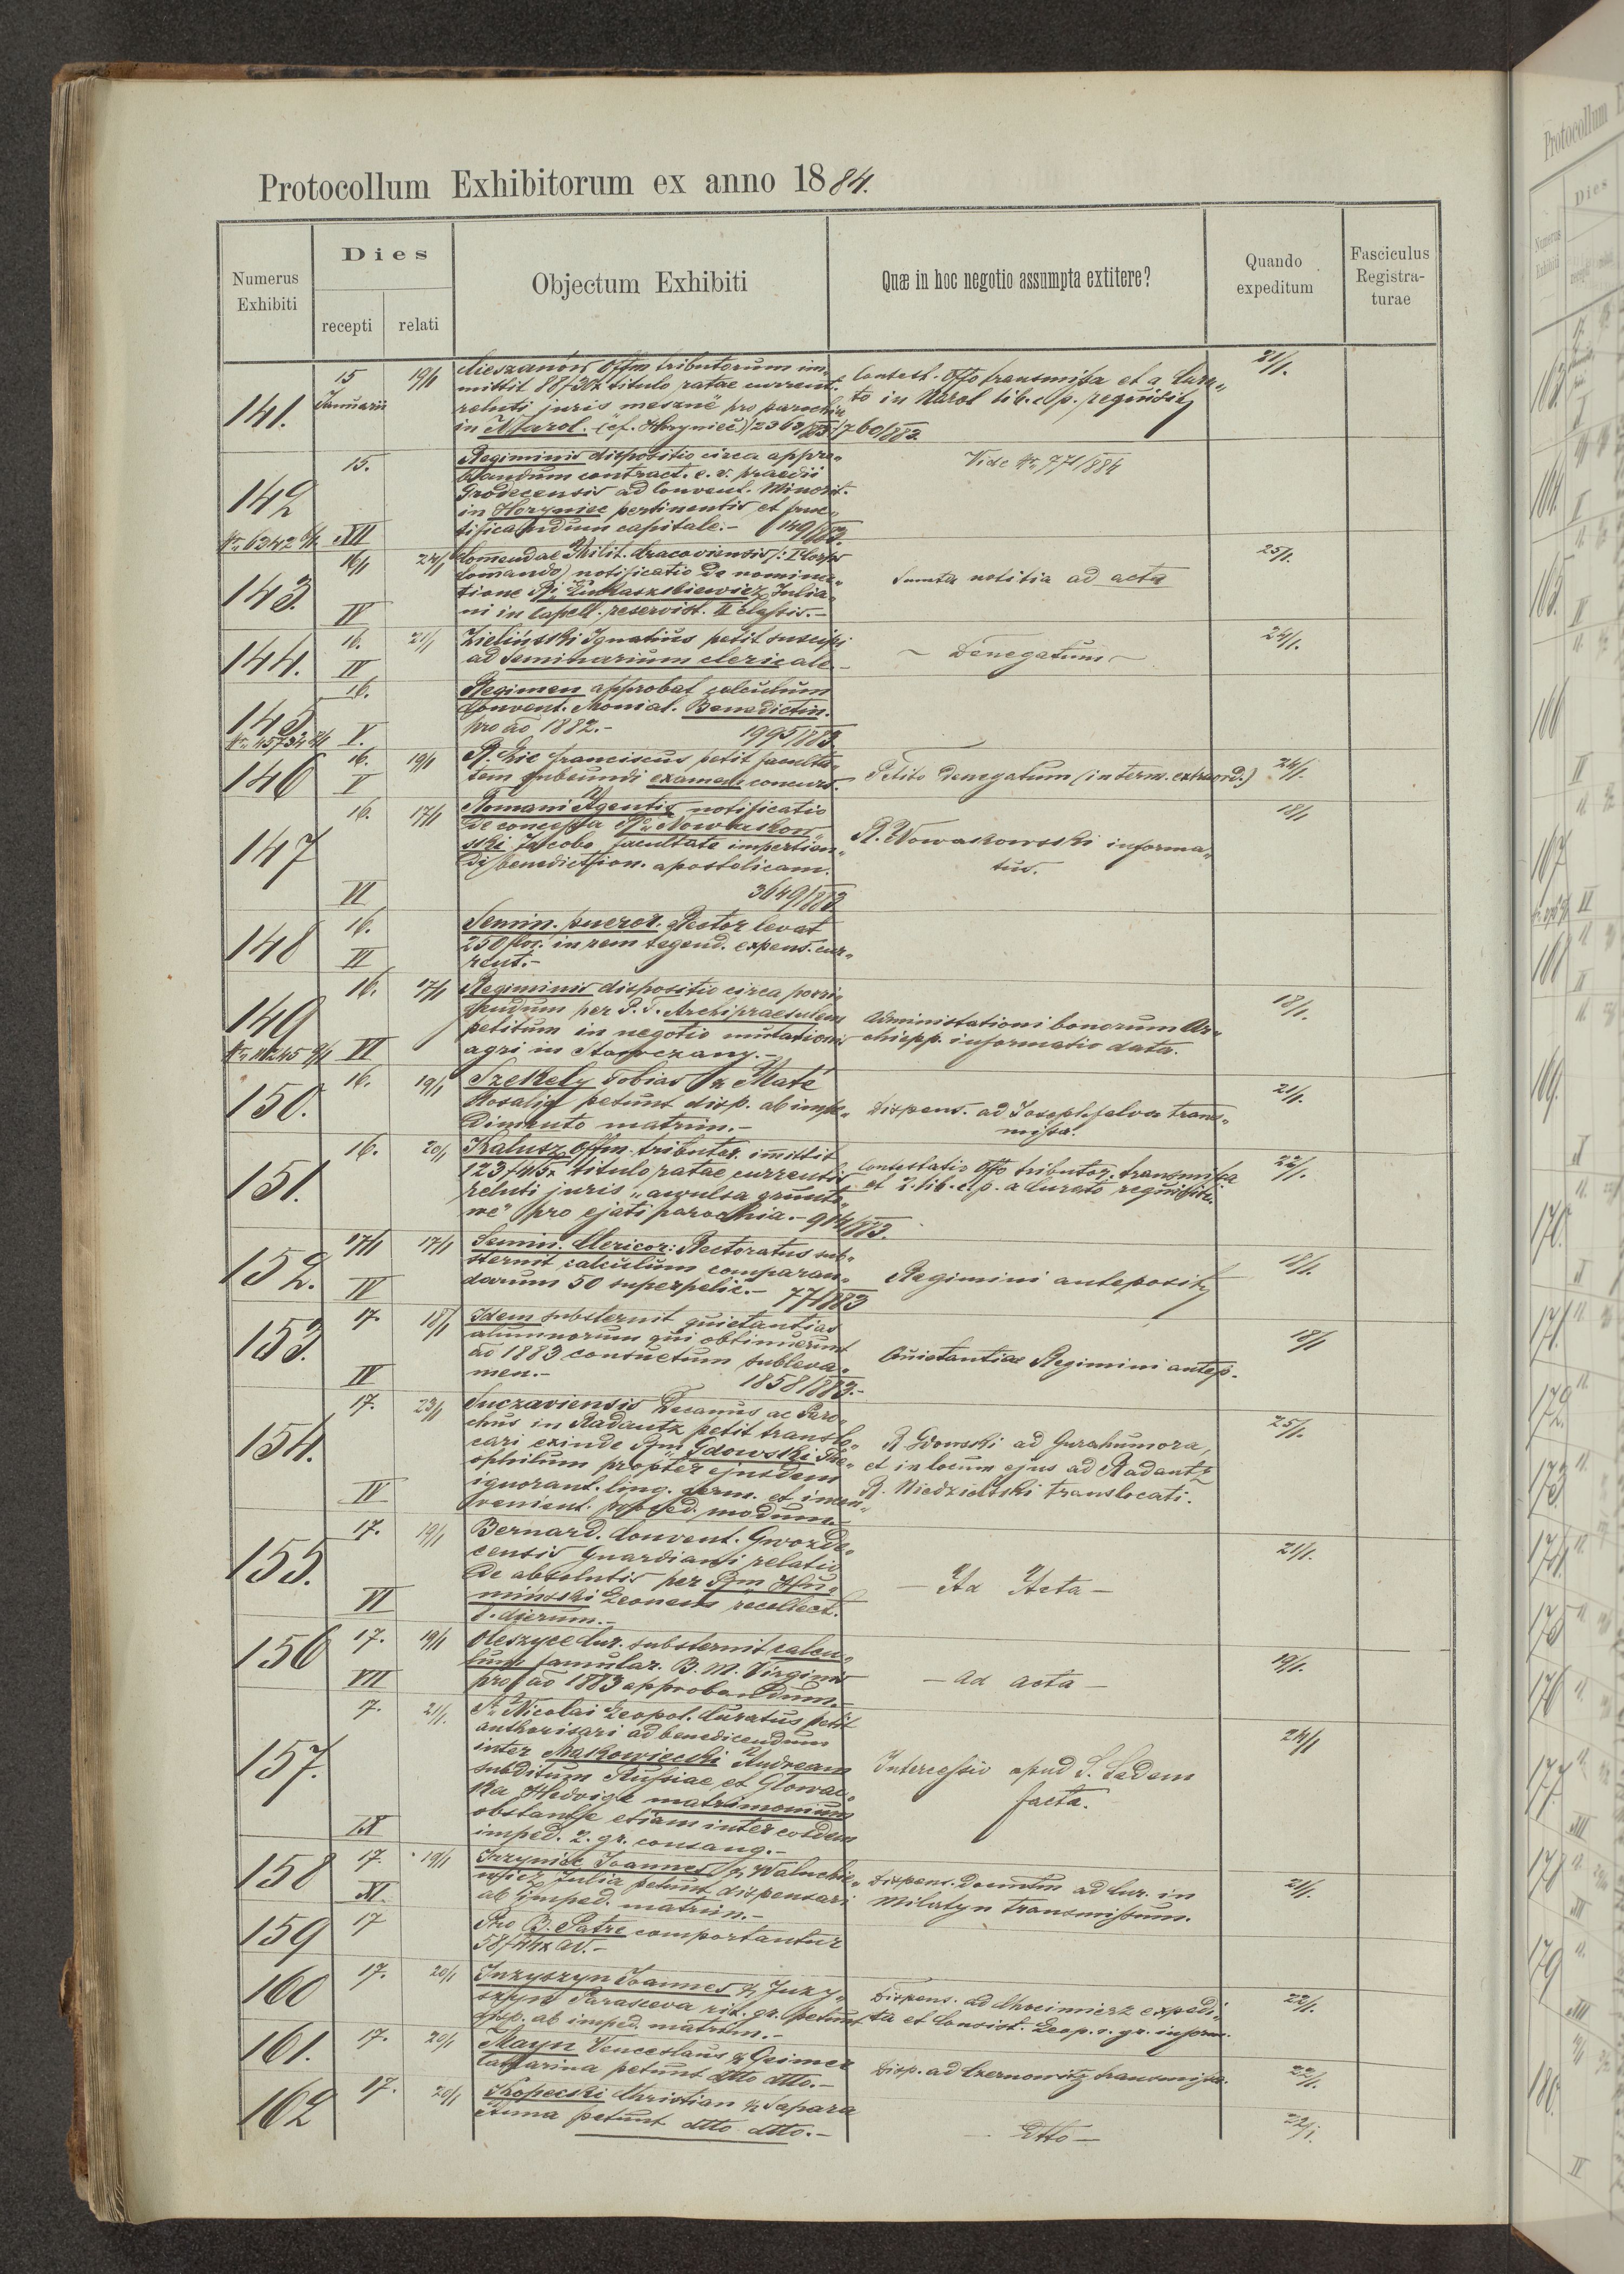 Protocollum Exhibitorum ex anno 1884.
Numerus Exhibiti
Dies
recepti
relati
Objectum Exhibiti
Quæ in hoc negotio assumpta extitere?
Quando expeditum
Fasciculus Registra-turae
141.
15 Januarii
19/1
Cieszanów Offm tributorum im-
mittit 88 f 30 x titulo ratae current.
reluti juris "meszne" pro parochia
in Narol. (cf. Horyniec) 2363/883 1760/883.
Contest. Offo transmissa et a Cura-
to in Narol lib. c. p. requisit
21/1.
142
Nr. 6242
15.
XII
Regiminis dispositio circa appro-
bandum contract. e. v. praedii
Grodecensis ad Convent. Minorit.
in Horyniec pertinentis et fruc-
tificandum capitale.- 149/883.
Vide Nr. 771/884
143.
16/1
IV
24/1
Commendae Milit. Cracoviensis (: I Corps
Commando) notificatio de nomina-
tione R. Łukaszkiewicz Julia-
ni in Capell. reservist. II Classis.-
Sumta notitia ad acta
25/1.
144.
16.
IV
21/1
Zieliński Ignatius petit suscipi
ad Seminarium clericale
- Denegatum -
24/1.
145
16.
V.
Regimen approbat calculum
Convent. Monial. Benedictin.
pro ao 1882.- 1995/883
146
16.
V
19/1
R. Zic Franciscus petit faculta-
tem subeundi examen concurs.
Petito denegatum (in term. extraord.)
24/1.
147
16.
VI
17/1
Romani Agentis notificatio
de concessa Rdo Nowakow-
ski Jacobo facultate impertien-
di benediction. apostolicam.
3649/883
R. Nowakowski informa-
tus.
18/1
148
16.
IV
Semin. pueror. Rector levat
250 flor. in rem tegend. expens. cur-
rent.-
149
16.
VI
17/1
Regiminis dispositio circa porri-
gendum per P. T. Archipraesulem
petitum in negotio mutationis
agri in
Administrationi bonorum Ar-
chiepp. informatio data.
18/1.
150.
16.
19/1
Szekely Tobias & Maté
Rosalia petunt disp. ab impe-
dimento matrim.-
Dispens. ad Josephfalva trans-
missa.
21/1.
151.
16.
20/1
Kałusz Offm tributor. immittit
123 f 45 x titulo ratae currentis
reluti juris "awulsa grunto-
we" pro ejati parochia.- 914/883.
Contestatio Offo tributor. transmissa
et q. lib. c. p. a Curato requisitu.
22/1.
152.
17/1
IV
17/1
Semin. Clericor: Rectoratus sub-
sternit calculum comparan-
darum 50 superpelic.- 771/883
Regimini anteposit
18/1.
153.
17.
IV
18/1
Idem substernit quietantias
alumnorum qui obtinuerunt
ao 1883 consuetum subleva-
men.- 1858/883.-
Quietantiae Regimini antep.
18/1
154.
17.
IV
23/1
Suczaviensis Decanus ac Paro-
chus in Radautz petit translo-
cari exinde Rm Gdowski The-
ophilum propter ejusdem
ignorant. ling. germ. et incon-
venient. modum.
R. Gdowski ad Gurahumora,
et in locum ejus ad Radautz
R. Niedzielski translocati.
25/1.
155.
17.
VI
19/1
Bernard. Convent. Gwozde-
censis Guardiani relatio
de absolutis per Rm Hu-
miński Leonem recollect.
8. dierum.-
- Ad Acta -
21/1.
156
17.
VII
19/1
Oleszyce Cur. substernit calcu-
lum famular. B. M. Virginis
pro ao 1883 approbandum.-
- ad acta -
19/1.
157.
7.
IX
21/1.
St. Nicolai Leopol. Curatus petit
authorisari ad benedicendum
inter Makowiecki Andream
subditum Russiae et Głowac-
ka Hedvige matrimonium
obstante etiam inter eosdem
imped. 2. gr. consang.-
Intercessio apud S. Sedem
facta.
24/1
158
17.
XI.
19/1
Inzyniek Joannes & Waluchie-
wicz Julia petunt dispensari
ab imped. matrim.-
Dispens. Docmtm ad Cur. in
Milatyn transmissum.
21/1.
159
17
Pro B. Patre comportantur
58 f 44 x av.-
160
17.
20/1
Juzyszyn Joannes & Juzy-
szyn Parasceva rit. gr. petunt
disp. ab imped. matrim.-
Dispens. ad Chocimierz expedi-
ta et Consist. Leop. r. gr. inform.
22/1.
161.
17.
20/1
Mayn Venceslaus & Geimer
Catharina petunt dtto dtto.-
Disp. ad Czernowitz transmissa.
22/1.
162
17.
20/1
Kopecski Christian & Sapara
Anna petunt dtto dtto.-
- Dtto -
22/1.